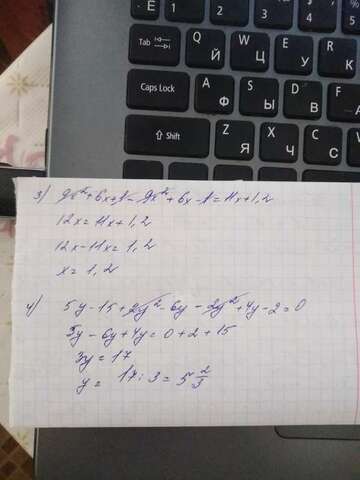 Ё 1 2 3 4 5 %
Tab Q Й W Ц E У R К
Caps Lock A Ф S Ы D В
Shift Z Я X Ч C С
3) 9x²+6x+1-9x²+6x-1=11x+1,2
12x=11x+1,2
12x-11x=1,2
x=1,2
4) 5y-15+2y²-6y-2y²+4y-2=0
5y-6y+4y=0+2+15
3y=17
y= 17:3=5 2/3